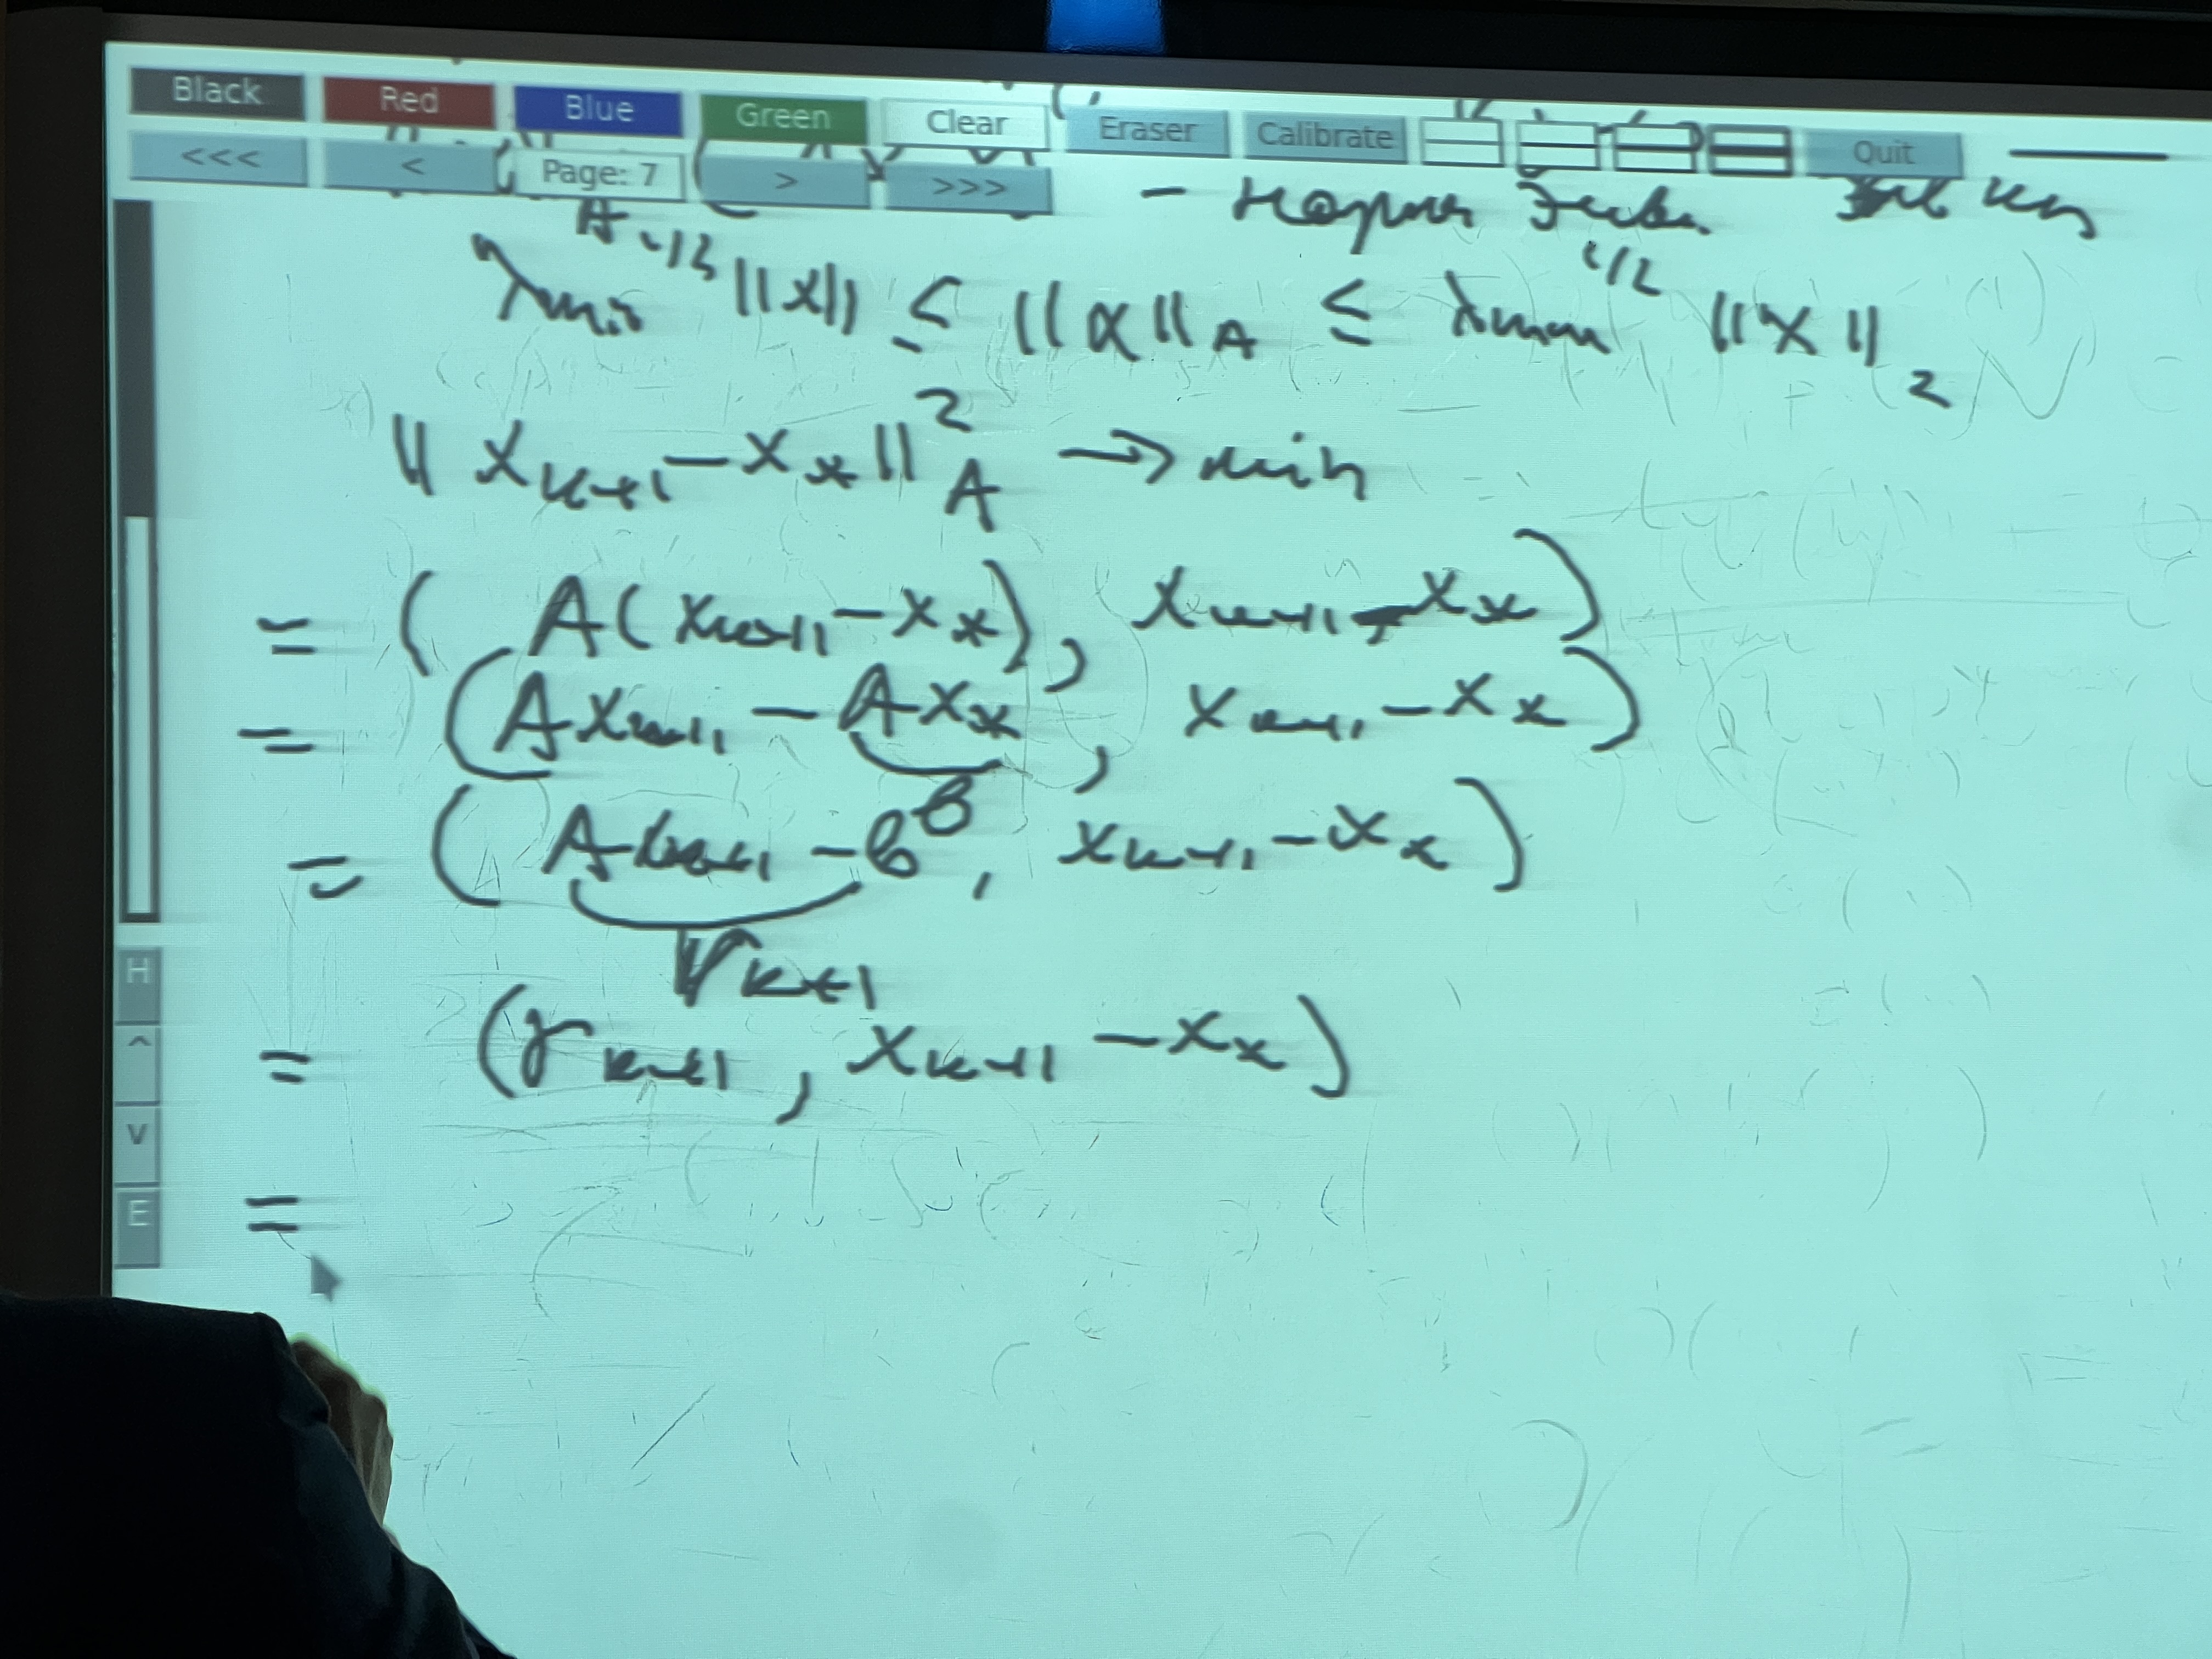 Black Red Blue Green Clear Eraser Calibrate Quit
<<< < Page: 7 > >>>
— Норма
λmin^1/2 ||x|| ≤ ||x||_A ≤ λmax^1/2 ||x||_2
|| x_{k+1} − x_* ||^2_A → min
= ( A(x_{k+1} − x_*), x_{k+1} − x_* )
= ( Ax_{k+1} − Ax_*, x_{k+1} − x_* )
b
= ( Ax_{k+1} − b, x_{k+1} − x_* )
r_{k+1}
= ( r_{k+1}, x_{k+1} − x_* )
=
H
^
v
E